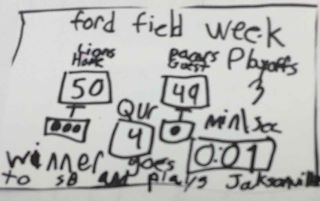 ford field week
Lions Pacars Playoffs
Home Guest 3
50 49
Qur
4 min/sec
0:01
winner goes
to SB and plays Jacksonville